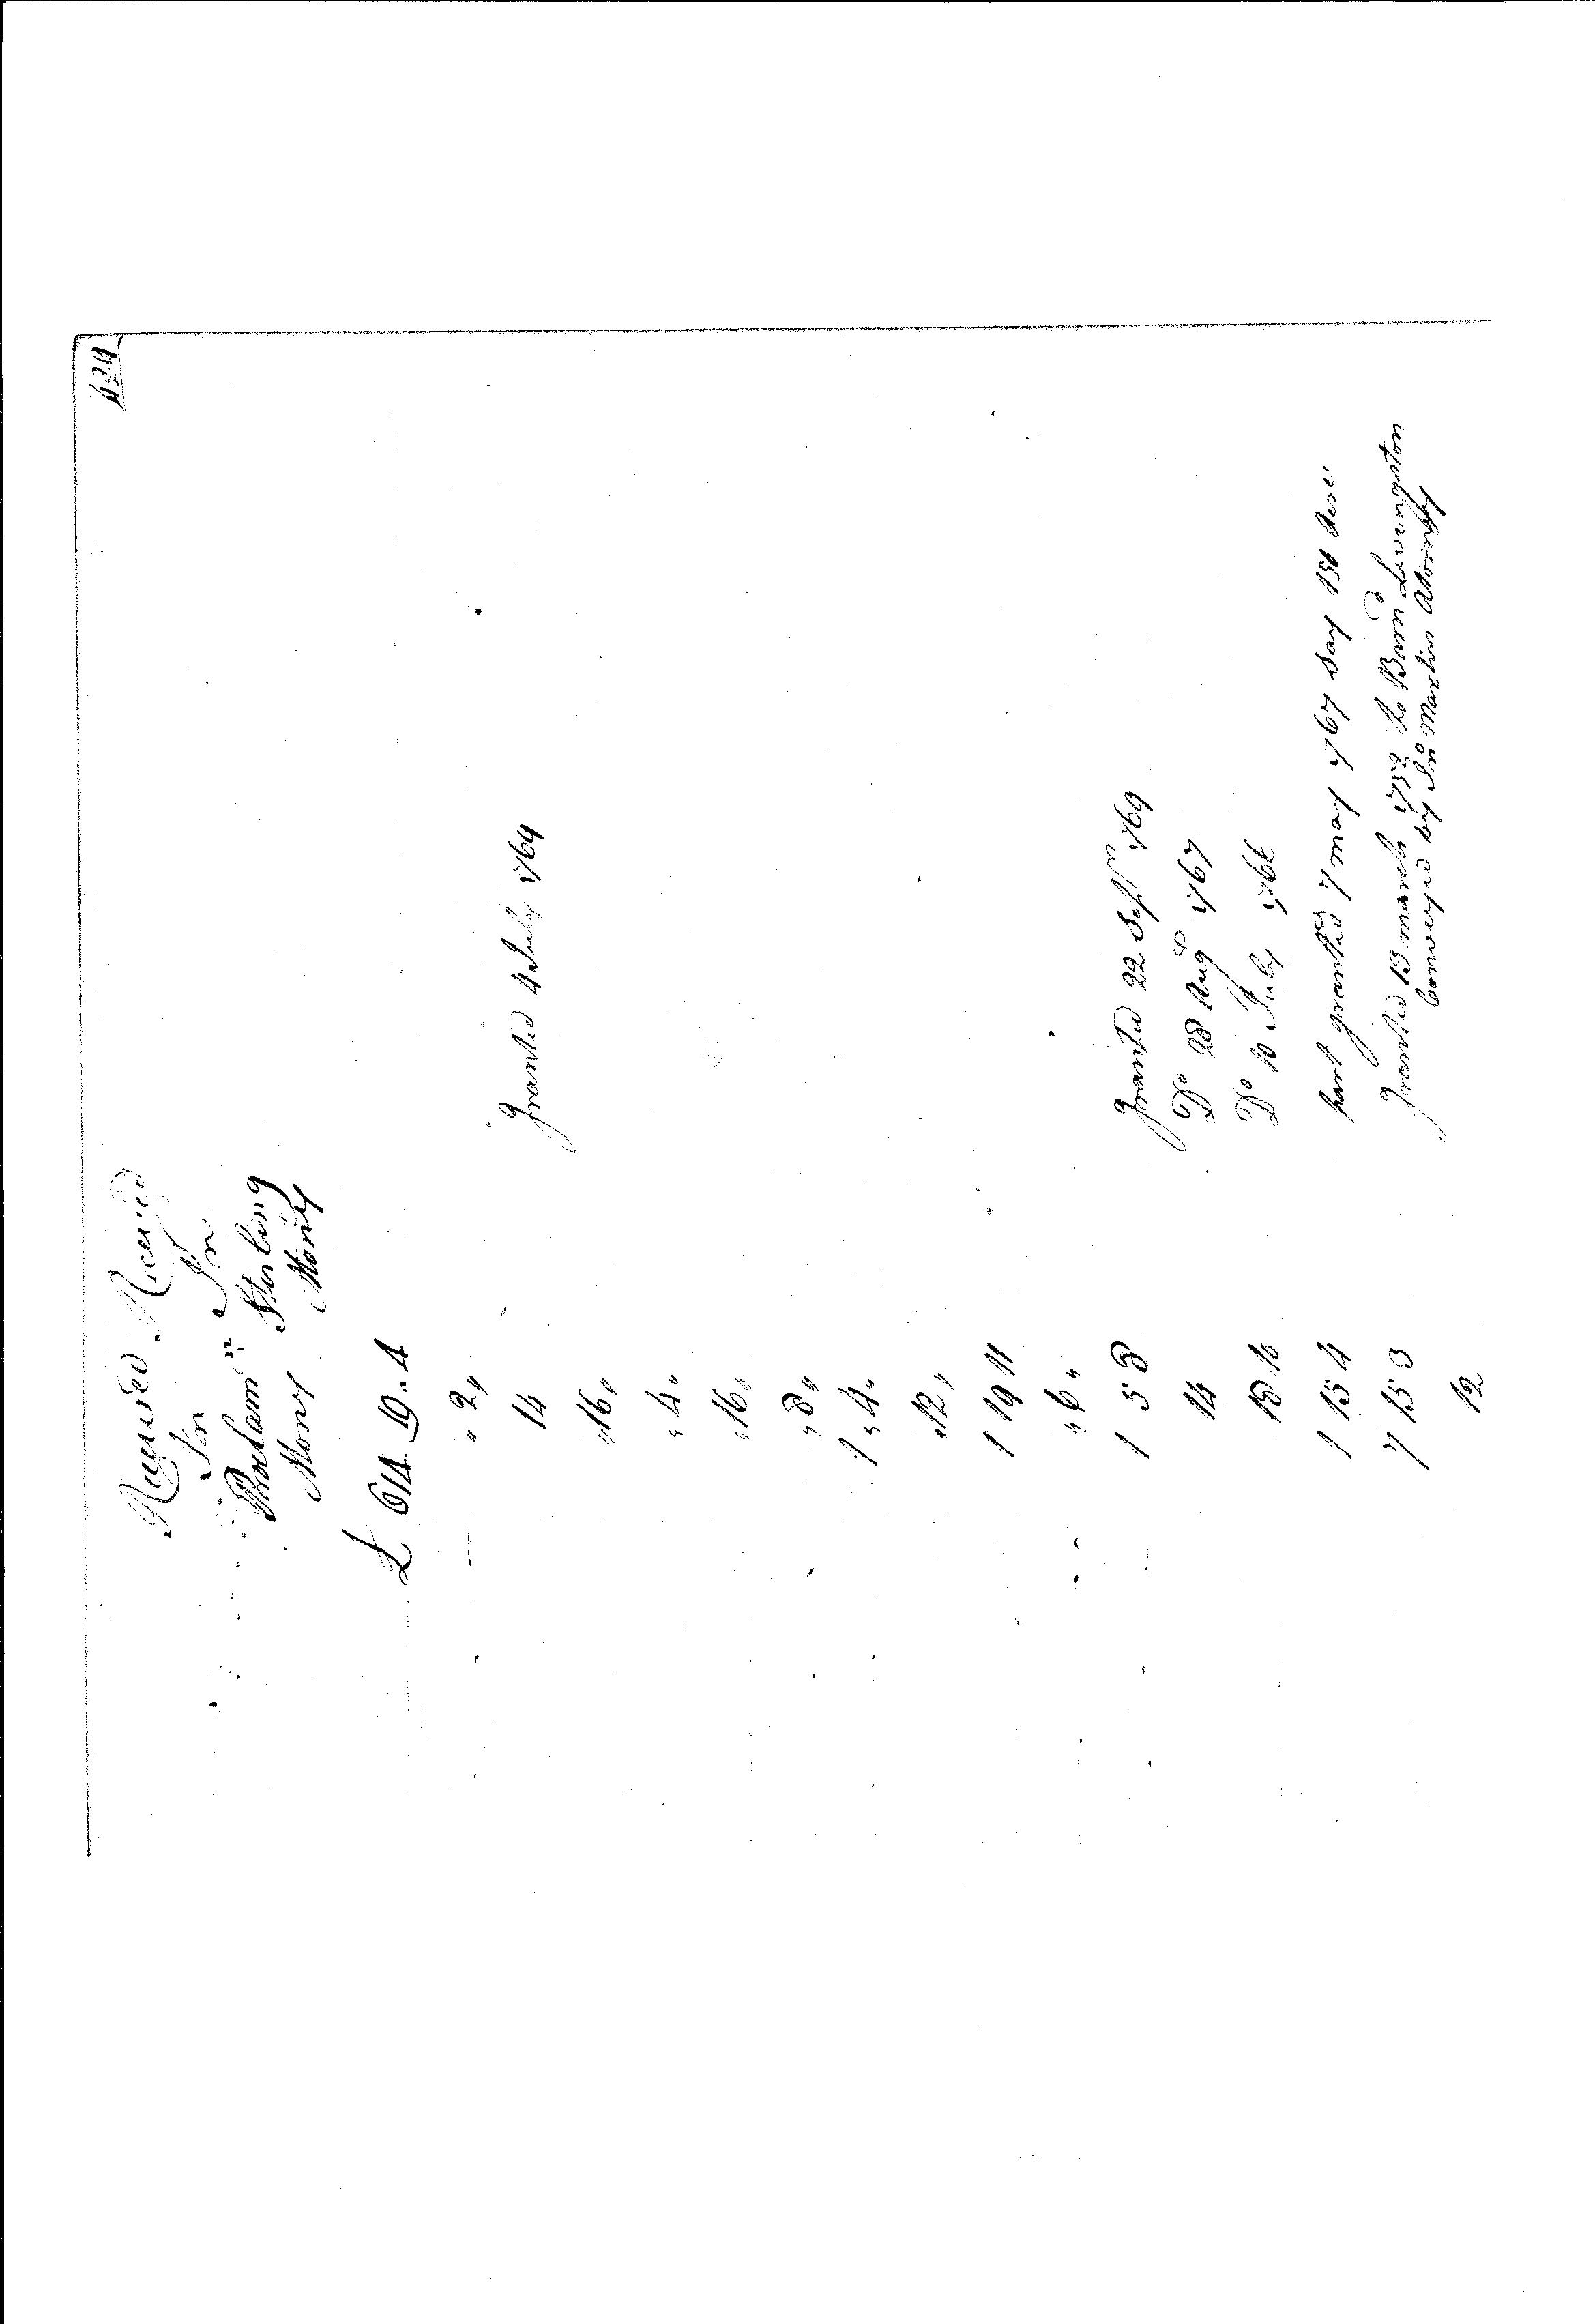 424
Received Received
In In
Proclam.n Sterling
Money Money
£ 614. 19. 4
" 2 "
14 Granted 4 July 1769
" 16 "
" 4 "
" 16 "
" 8 "
1 " 4 "
" 12 "
1 19 11
" 6 "
1 5 8 Granted 22 Sep.r 1769
14 Do 28 Aug.t 1767
18 10 Do 10 July 1766
1 15 4 part granted 7 may 1767 Say 150 Acres
7 15 3 Granted 13 march 1752 to Barnd Livingston
Conveyed by Jno Martin Atorney
12